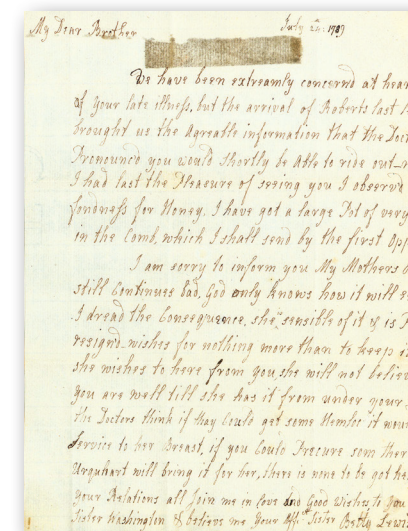 My Dear Brother July 24th 1789
We have been extreamly concernd at hear
of your late illness, but the arrival of Roberts last
brought us the Agreable information that the Doct
Pronounc'd you would shortly be Able to ride out
I had last the Pleasure of seeing you I observd
fondness for Honey, I have got a large Pot of very
in the Comb, which I shall send by the first Opp
I am sorry to inform you My Mothers
still Continues bad, God only knows how it will
I dread the Consequence, she sensible of it & is
resignd wishes for nothing more than to keep it
she wishes to here from you, she will not believ
you are well till she has it from under your
the Doctors think if thay Could get some Hemloc it wou
Service to her Breast, if you Could Procure som ther
Urquhart will bring it for her, there is none to be got he
your Relations all Join me in love and Good Wishes to you
Sister Washington & believe me your Affn Sister Betty Lewis